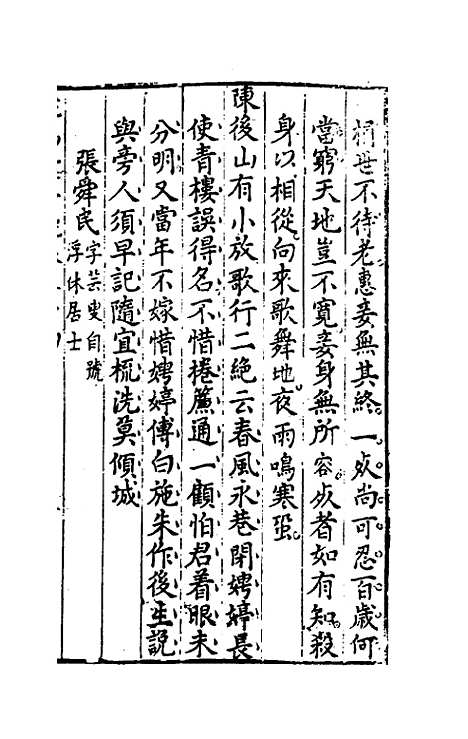 捐世不待老惠妾無其終一死尚可忍百歲何
當窮天地豈不寬妾身無所容死者如有知殺
身以相從向來歌舞地夜雨鳴寒蛩
陳後山有小放歌行二絶云春風永巷閉娉婷長
使青樓誤得名不惜捲簾通一顧怕君着眼未
分明又當年不嫁惜娉婷傅白施朱作後生說
與旁人須早記隨宜梳洗莫傾城
張舜民字芸叟自號
浮休居士